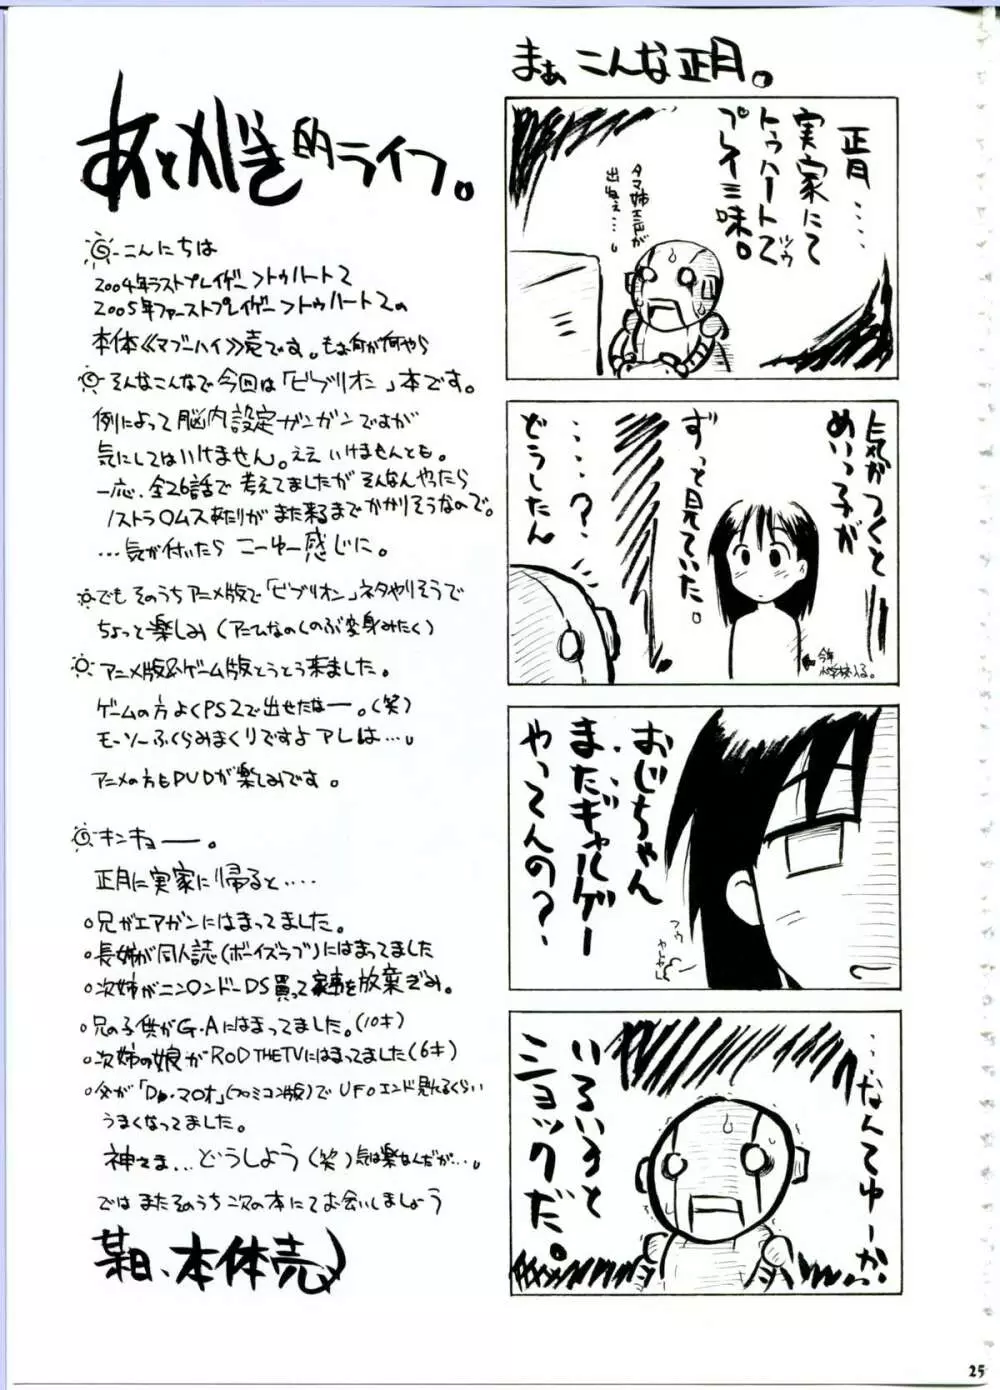 まぁ こんな正月。
正月‥‥
実家にて
トゥハート2
プレイ三昧。
タマ姉エンドが
出ねぇ…。
気がつくと――
めいっ子が
ずっと見ていた。
‥‥‥?
どうしたん
今年
小学校入る。
おじちゃん
まだギャルゲー
やってんの?
フゥ
やれやれ
…なんてゆーか
いろいろと
ショックだ。
あとがき的ライフ。
こんにちは
2004年ラストプレイゲー>トゥハート2
2005年ファーストプレイゲー>トゥハート2の
本体《マブーハイ》売です。もぉ何が何やら
そんなこんなで今回は「ビブリオン」本です。
例によって脳内設定ガンガンですが
気にしてはいけません。ええ いけませんとも。
一応、全26話で 考えてましたが そんなんやったら
ノストラ〇ムスあたりが また来るまで かかりそうなので。
…気が付いたら こーゆー感じに。
でも そのうちアニメ版で「ビブリオン」ネタやりそうで
ちょっと楽しみ(アニムなのくのぶ変身みたく)
アニメ版&ゲーム版とうとう来ました。
ゲームの方 よくPS2で出せたなー。(笑)
モーソーふくらみまくりですよ アレは…。
アニメの方もDVDが楽しみです。
キンキョー。
正月に実家に帰ると‥‥
○兄がエアガンにはまってました。
○長姉が同人誌(ボーイズラブ)にはまってました
○次姉がニン〇ンドーDS買って家事を放棄ぎみ。
○兄の子供がG.Aにはまってました。(10才)
○次姉の娘がROD THE TVにはまってました(6才)
○父が「Dr.マ〇オ」(ファミコン版)でUFOエンド見れるくらい
うまくなってました。
神さま… どうしよう(笑)気は楽なんだが…。
では またそのうち 次の本にてお会いしましょう
某日、本体売
25